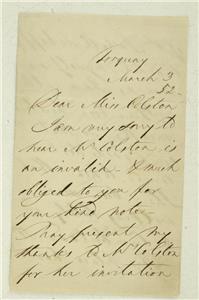 Torquay
March 3
52
Dear Miss Colston
I am very sorry to
hear Mrs Colston is
an invalid - & much
obliged to you for
your kind note -
Pray present my
thanks to Mrs Colston
for her invitation